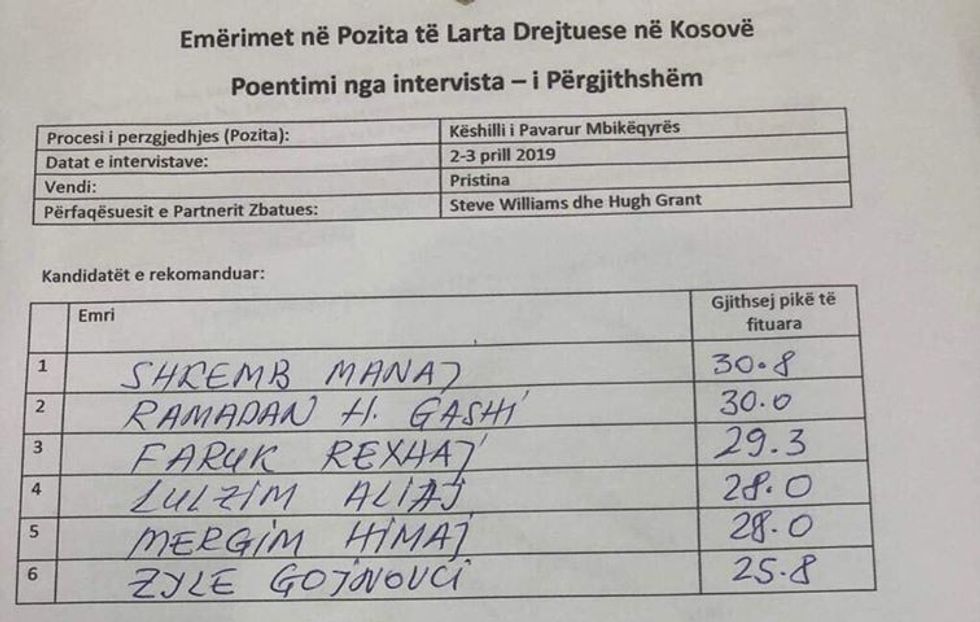 Emërimet në Pozita të Larta Drejtuese në Kosovë
Poentimi nga intervista – i Përgjithshëm
Procesi i perzgjedhjes (Pozita): Këshilli i Pavarur Mbikëqyrës
Datat e intervistave: 2-3 prill 2019
Vendi: Pristina
Përfaqësuesit e Partnerit Zbatues: Steve Williams dhe Hugh Grant
Kandidatët e rekomanduar:
Emri Gjithsej pikë të
fituara
1 SHKEMB MANAJ 30.8
2 RAMADAN H. GASHI 30.0
3 FARUK REXHAJ 29.3
4 LULZIM ALIAJ 28.0
5 MERGIM HIMAJ 28.0
6 ZYLE GOJNOVCI 25.8